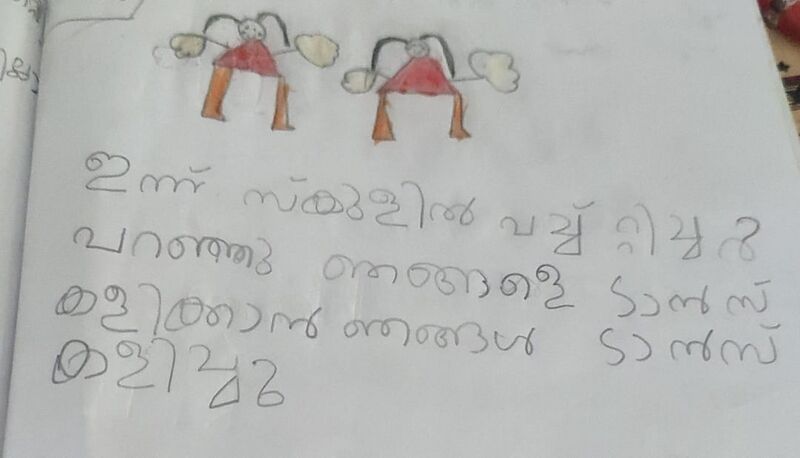 ഇന്ന് സ്കുളിൽ വച്ച് റ്റിച്ചർ
പറഞ്ഞു ഞങ്ങളെ ഡാൻസ്
കളിക്കാൻ ഞങ്ങൾ ഡാൻസ്
കളിച്ചു